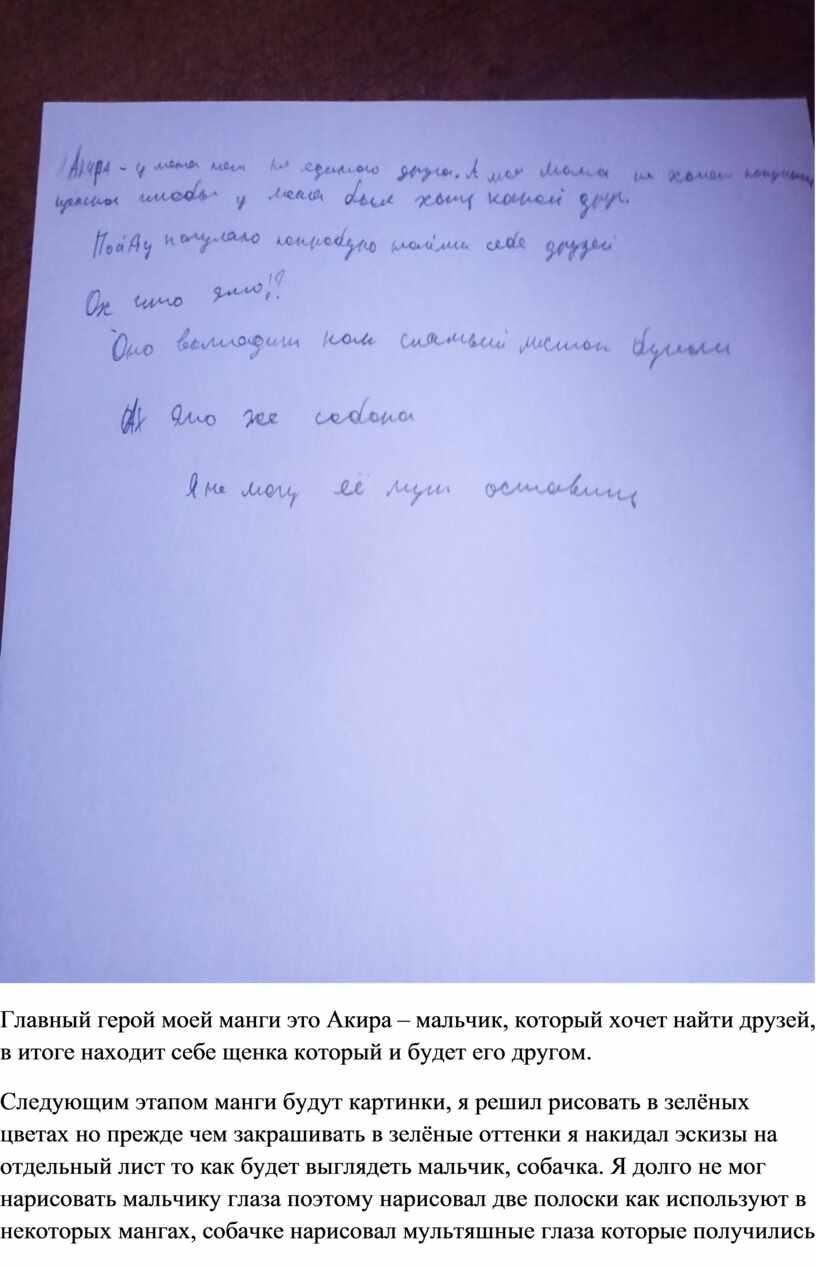 Акира - у меня нет не единого друга. А моя мама не хочет
чтобы у меня был хоть какой друг.
Пойду погуляю попробую найти себе друзей
Ох что это!?
Оно выглядит как смятый листок бумаги
Ах это же собака
Я не могу её тут оставить
Главный герой моей манги это Акира – мальчик, который хочет найти друзей,
в итоге находит себе щенка который и будет его другом.
Следующим этапом манги будут картинки, я решил рисовать в зелёных
цветах но прежде чем закрашивать в зелёные оттенки я накидал эскизы на
отдельный лист то как будет выглядеть мальчик, собачка. Я долго не мог
нарисовать мальчику глаза поэтому нарисовал две полоски как используют в
некоторых мангах, собачке нарисовал мультяшные глаза которые получились